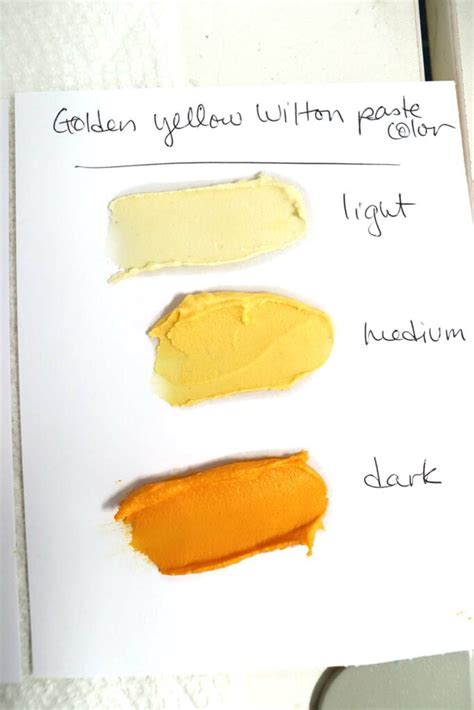 Golden yellow Wilton paste
color
light
medium
dark